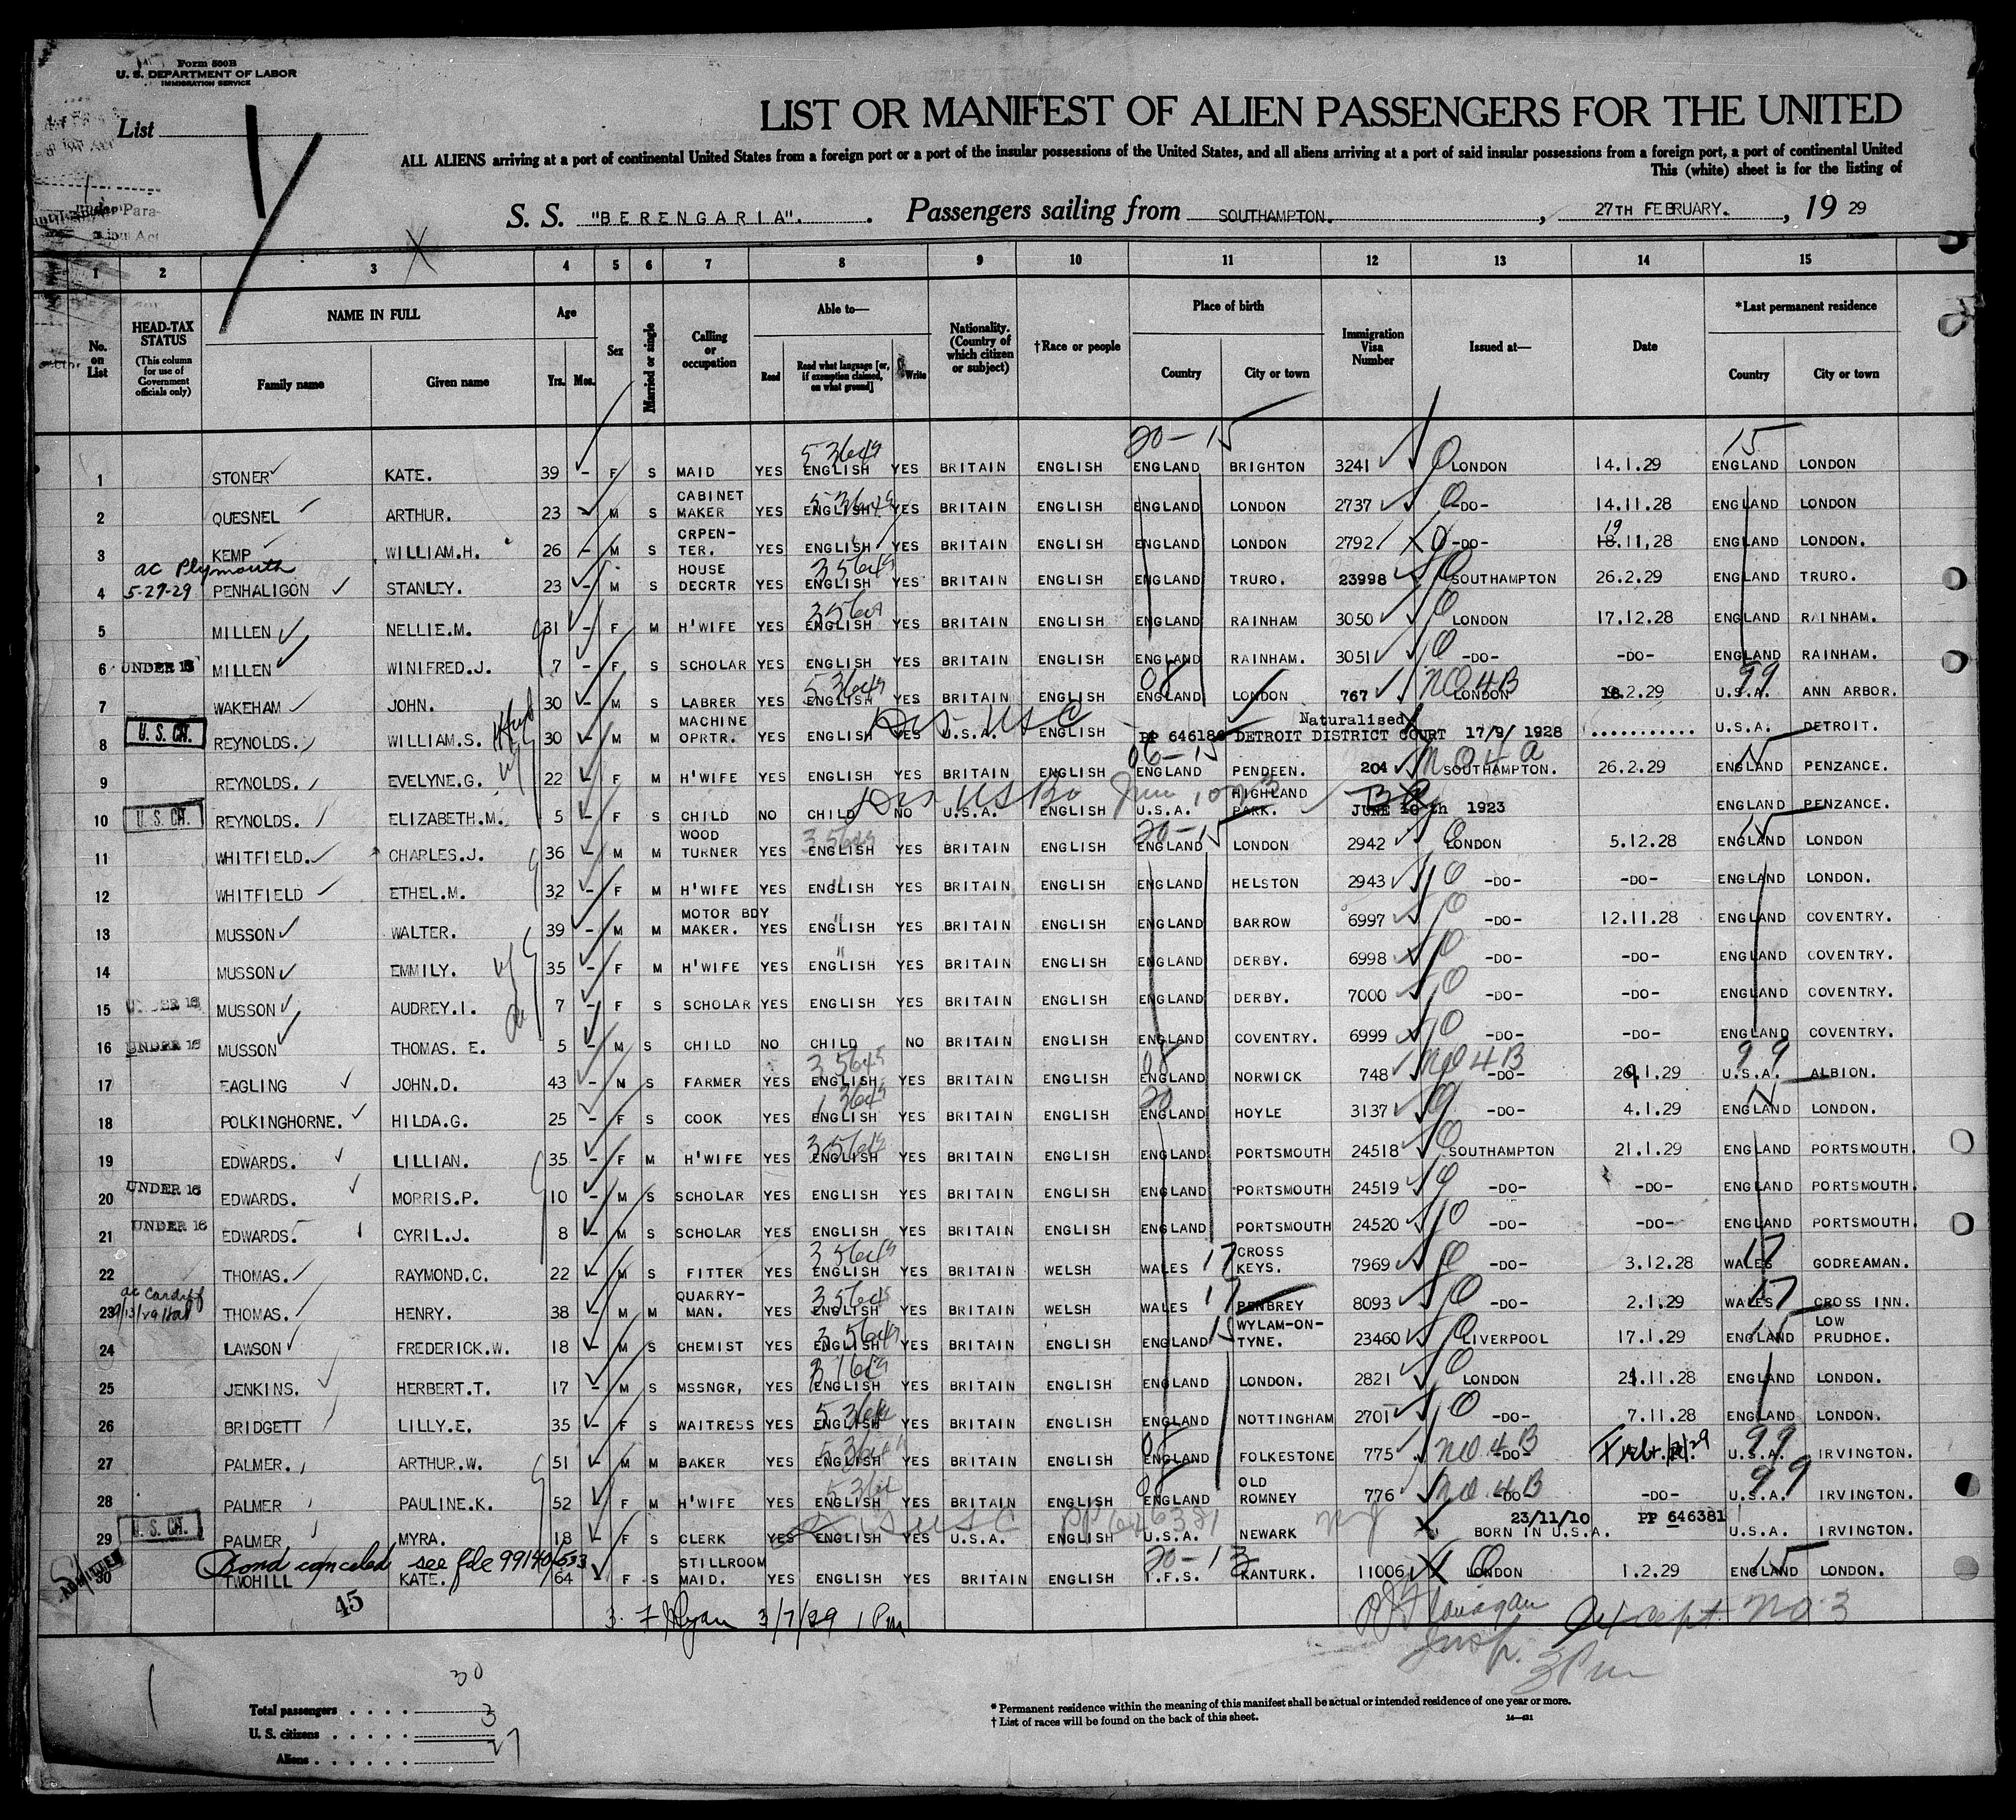 Form 500B
U. S. DEPARTMENT OF LABOR
IMMIGRATION SERVICE
List
LIST OR MANIFEST OF ALIEN PASSENGERS FOR THE UNITED
ALL ALIENS arriving at a port of continental United States from a foreign port or a port of the insular possessions of the United States, and all aliens arriving at a port of said insular possessions from a foreign port, a port of continental United
This (white) sheet is for the listing of
S. S. "BERENGARIA". Passengers sailing from SOUTHAMPTON. , 27TH FEBRUARY. , 19 29
1 2 3 4 5 6 7 8 9 10 11 12 13 14 15
No. on List HEAD-TAX STATUS (This column for use of Government officials only) NAME IN FULL Family name Given name Age Yrs. Mos. Sex Married or single Calling or occupation Able to— Read Read what language [or, if exemption claimed, on what ground] Write Nationality. (Country of which citizen or subject) †Race or people Place of birth Country City or town Immigration Visa Number Issued at— Date *Last permanent residence Country City or town
20-15 15
1 STONER KATE. 39 - F S MAID YES ENGLISH YES BRITAIN ENGLISH ENGLAND BRIGHTON 3241 LONDON 14.1.29 ENGLAND LONDON
2 QUESNEL ARTHUR. 23 - M S CABINET MAKER YES ENGLISH YES BRITAIN ENGLISH ENGLAND LONDON 2737 -DO- 14.11.28 ENGLAND LONDON
3 KEMP WILLIAM.H. 26 - M S CRPEN-TER. YES ENGLISH YES BRITAIN ENGLISH ENGLAND LONDON 2792 -DO- 19 18.11,28 ENGLAND LONDON.
ac Plymouth
4 5-27-29 PENHALIGON STANLEY. 23 - M S HOUSE DECRTR YES ENGLISH YES BRITAIN ENGLISH ENGLAND TRURO. 23998 SOUTHAMPTON 26.2.29 ENGLAND TRURO.
5 MILLEN NELLIE.M. 31 - F M H'WIFE YES ENGLISH YES BRITAIN ENGLISH ENGLAND RAINHAM 3050 LONDON 17.12.28 ENGLAND RAINHAM.
6 UNDER 16 MILLEN WINIFRED.J. 7 - F S SCHOLAR YES ENGLISH YES BRITAIN ENGLISH ENGLAND RAINHAM. 3051 -DO- -DO- ENGLAND RAINHAM.
7 WAKEHAM JOHN. 30 - M S LABRER YES ENGLISH YES BRITAIN ENGLISH ENGLAND LONDON 767 NO 4 B LONDON 18.2.29 99 U.S.A. ANN ARBOR.
8 U. S. CIT. REYNOLDS. WILLIAM.S. 30 - M M MACHINE OPRTR. YES ENGLISH YES U.S.A. ENGLISH PP 646180 Naturalised DETROIT DISTRICT COURT 17/9/ 1928 ........... U.S.A. DETROIT.
9 REYNOLDS. EVELYNE.G. 22 - F M H'WIFE YES ENGLISH YES BRITAIN ENGLISH ENGLAND PENDEEN. 204 NO 4 a SOUTHAMPTON. 26.2.29 ENGLAND PENZANCE.
10 U. S. CIT. REYNOLDS. ELIZABETH.M. 5 - F S CHILD NO CHILD NO U.S.A. ENGLISH U.S.A. HIGHLAND PARK. JUNE 10th 1923 ENGLAND PENZANCE.
11 WHITFIELD. CHARLES.J. 36 - M M WOOD TURNER YES ENGLISH YES BRITAIN ENGLISH 20-15 ENGLAND LONDON 2942 LONDON 5.12.28 15 ENGLAND LONDON
12 WHITFIELD ETHEL.M. 32 - F M H'WIFE YES ENGLISH YES BRITAIN ENGLISH ENGLAND HELSTON 2943 -DO- -DO- ENGLAND LONDON.
13 MUSSON WALTER. 39 - M M MOTOR BDY MAKER. YES ENGLISH YES BRITAIN ENGLISH ENGLAND BARROW 6997 -DO- 12.11.28 ENGLAND COVENTRY.
14 MUSSON EMMILY. 35 - F M H'WIFE YES ENGLISH YES BRITAIN ENGLISH ENGLAND DERBY. 6998 -DO- -DO- ENGLAND COVENTRY.
15 UNDER 16 MUSSON AUDREY.I. 7 - F S SCHOLAR YES ENGLISH YES BRITAIN ENGLISH ENGLAND DERBY. 7000 -DO- -DO- ENGLAND COVENTRY.
16 UNDER 16 MUSSON THOMAS. E. 5 - M S CHILD NO CHILD NO BRITAIN ENGLISH ENGLAND COVENTRY. 6999 -DO- -DO- ENGLAND COVENTRY.
17 EAGLING JOHN.D. 43 - M S FARMER YES ENGLISH YES BRITAIN ENGLISH ENGLAND NORWICK 748 NO 4 B -DO- 29.1.29 99 U.S.A. ALBION.
18 POLKINGHORNE. HILDA.G. 25 - F S COOK YES ENGLISH YES BRITAIN ENGLISH 20 ENGLAND HOYLE 3137 -DO- 4.1.29 ENGLAND LONDON.
19 EDWARDS. LILLIAN. 35 - F M H'WIFE YES ENGLISH YES BRITAIN ENGLISH ENGLAND PORTSMOUTH 24518 SOUTHAMPTON 21.1.29 ENGLAND PORTSMOUTH.
20 UNDER 16 EDWARDS. MORRIS.P. 10 - M S SCHOLAR YES ENGLISH YES BRITAIN ENGLISH ENGLAND PORTSMOUTH 24519 -DO- -DO- ENGLAND PORTSMOUTH.
21 UNDER 16 EDWARDS. CYRIL.J. 8 - M S SCHOLAR YES ENGLISH YES BRITAIN ENGLISH ENGLAND PORTSMOUTH 24520 -DO- -DO- ENGLAND PORTSMOUTH.
22 THOMAS. RAYMOND.C. 22 - M S FITTER YES ENGLISH YES BRITAIN WELSH WALES 17 CROSS KEYS. 7969 -DO- 3.12.28 WALES 17 GODREAMAN.
ac Cardiff
23 THOMAS. HENRY. 38 - M M QUARRY-MAN. YES ENGLISH YES BRITAIN WELSH WALES 17 PENBREY 8093 -DO- 2.1.29 WALES 17 CROSS INN.
24 LAWSON FREDERICK.W. 18 - M S CHEMIST YES ENGLISH YES BRITAIN ENGLISH ENGLAND 15 WYLAM-ON-TYNE. 23460 LIVERPOOL 17.1.29 ENGLAND LOW PRUDHOE.
25 JENKINS. HERBERT.T. 17 - M S MSSNGR, YES ENGLISH YES BRITAIN ENGLISH ENGLAND LONDON. 2821 LONDON 21.11.28 ENGLAND LONDON.
26 BRIDGETT LILLY.E. 35 - F S WAITRESS YES ENGLISH YES BRITAIN ENGLISH ENGLAND NOTTINGHAM 2701 -DO- 7.11.28 ENGLAND LONDON.
27 PALMER. ARTHUR.W. 51 - M M BAKER YES ENGLISH YES BRITAIN ENGLISH ENGLAND FOLKESTONE 775 NO 4 B -DO- 99 U.S.A. IRVINGTON.
28 PALMER PAULINE.K. 52 F M H'WIFE YES ENGLISH YES BRITAIN ENGLISH ENGLAND OLD ROMNEY 776 NO 4 B -DO- -DO- 99 U.S.A. IRVINGTON.
29 U. S. CIT. PALMER MYRA. 18 - F S CLERK YES ENGLISH YES U.S.A. PP 646381 U.S.A. NEWARK NJ 23/11/10 BORN IN U.S.A. PP 646381 U.S.A. IRVINGTON.
Bond canceled see file 99140/533
30 ADMITTED TWOHILL KATE. 64 - F S STILLROOM MAID. YES ENGLISH YES BRITAIN ENGLISH 20-13 I.F.S. KANTURK. 11006 LONDON 1.2.29 15 ENGLAND LONDON.
45
3/7/29 1 Pm
Flanagan Insp. except No 3
3 Pm
Total passengers 30
U. S. citizens 3
Aliens 27
* Permanent residence within the meaning of this manifest shall be actual or intended residence of one year or more.
† List of races will be found on the back of this sheet.